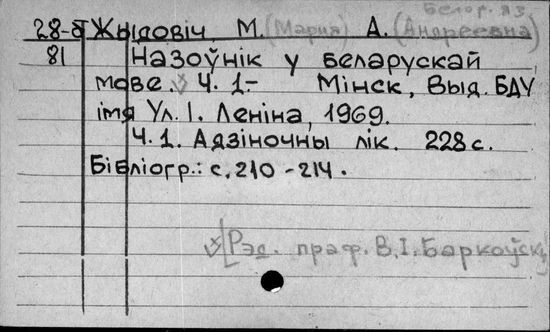 Белор. яз
28-б Жыдовіч, М. (Мария) А. (Андреевна)
81 Назоўнік у беларускай
мове. Ч. 1.- Мінск, Выд. БДУ
імя Ул. І. Леніна, 1969.
Ч. 1. Адзіночны лік. 228 с.
Бібліогр.: с. 210 - 214.
[Рэд. праф. В. І. Баркоўскі